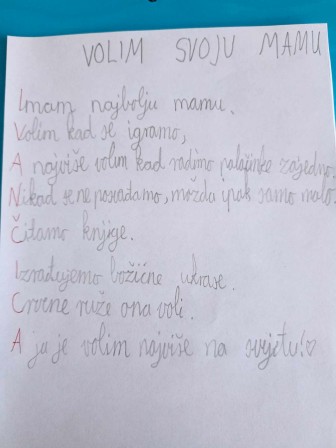 VOLIM SVOJU MAMU
Imam najbolju mamu.
Volim kad se igramo,
A najviše volim kad radimo palačinke zajedno.
Nikad se ne posvađamo, možda ipak samo malo.
Čitamo knjige.
Izrađujemo božićne ukrase.
Crvene ruže ona voli.
A ja je volim najviše na svijetu!♡